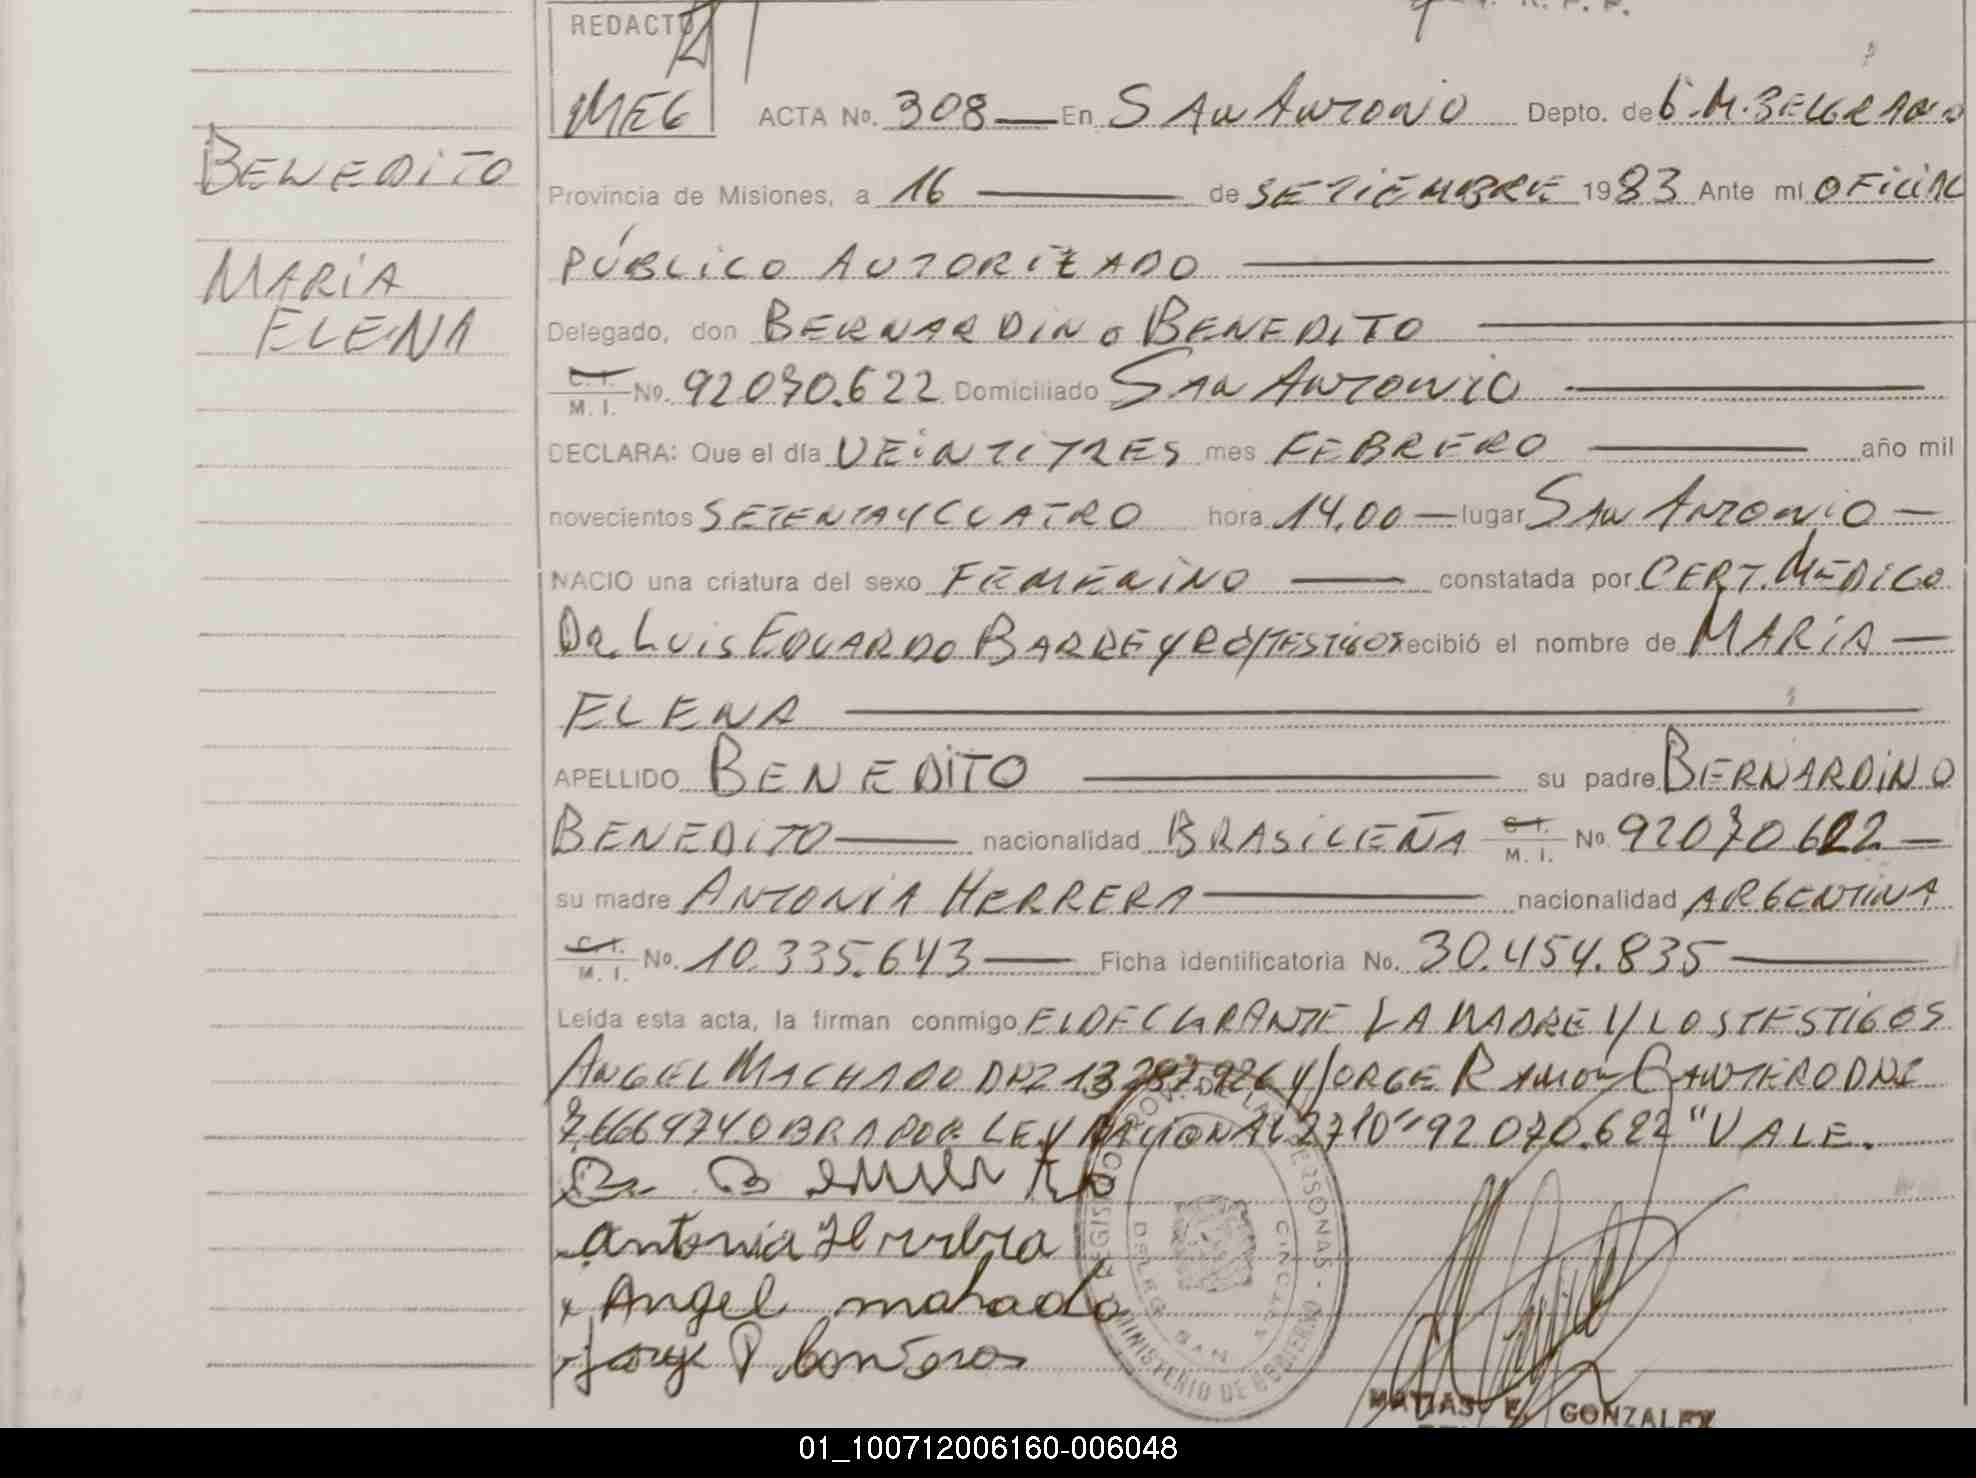 REDACTO
MEG
ACTA No. 308 — En SAN ANTONIO Depto. de G.M. BELGRANO
BENEDITO
Provincia de Misiones, a 16 — de SETIEMBRE 1983 Ante mí OFICIAL
PÚBLICO AUTORIZADO —
MARIA
ELENA
Delegado, don BERNARDINO BENEDITO —
C. I. M. I. No. 92070.622 Domiciliado SAN ANTONIO —
DECLARA: Que el día VEINTITRES mes FEBRERO — año mil
novecientos SETENTA Y CUATRO hora 14,00 — lugar SAN ANTONIO —
NACIO una criatura del sexo FEMENINO — constatada por CERT. MEDICO
DR. LUIS EDUARDO BARREYRO/TESTIGOS recibió el nombre de MARIA —
ELENA —
APELLIDO BENEDITO — su padre BERNARDINO
BENEDITO — nacionalidad BRASILEÑA C. I. M. I. No 92070622 —
su madre ANTONIA HERRERA — nacionalidad ARGENTINA
C. I. M. I. No. 10.335.643 — Ficha identificatoria No. 30.454.835 —
Leída esta acta, la firman conmigo EL DECLARANTE LA MADRE Y LOS TESTIGOS
ANGEL MACHADO DNI Y JORGE RAMON CANTERO DNI
OBRADO LEY NACIONAL "92070.622" VALE.
Antonia Herrera
Angel machado
MATIAS E. GONZALEZ
MINISTERIO DE GOBIERNO
01_100712006160-006048